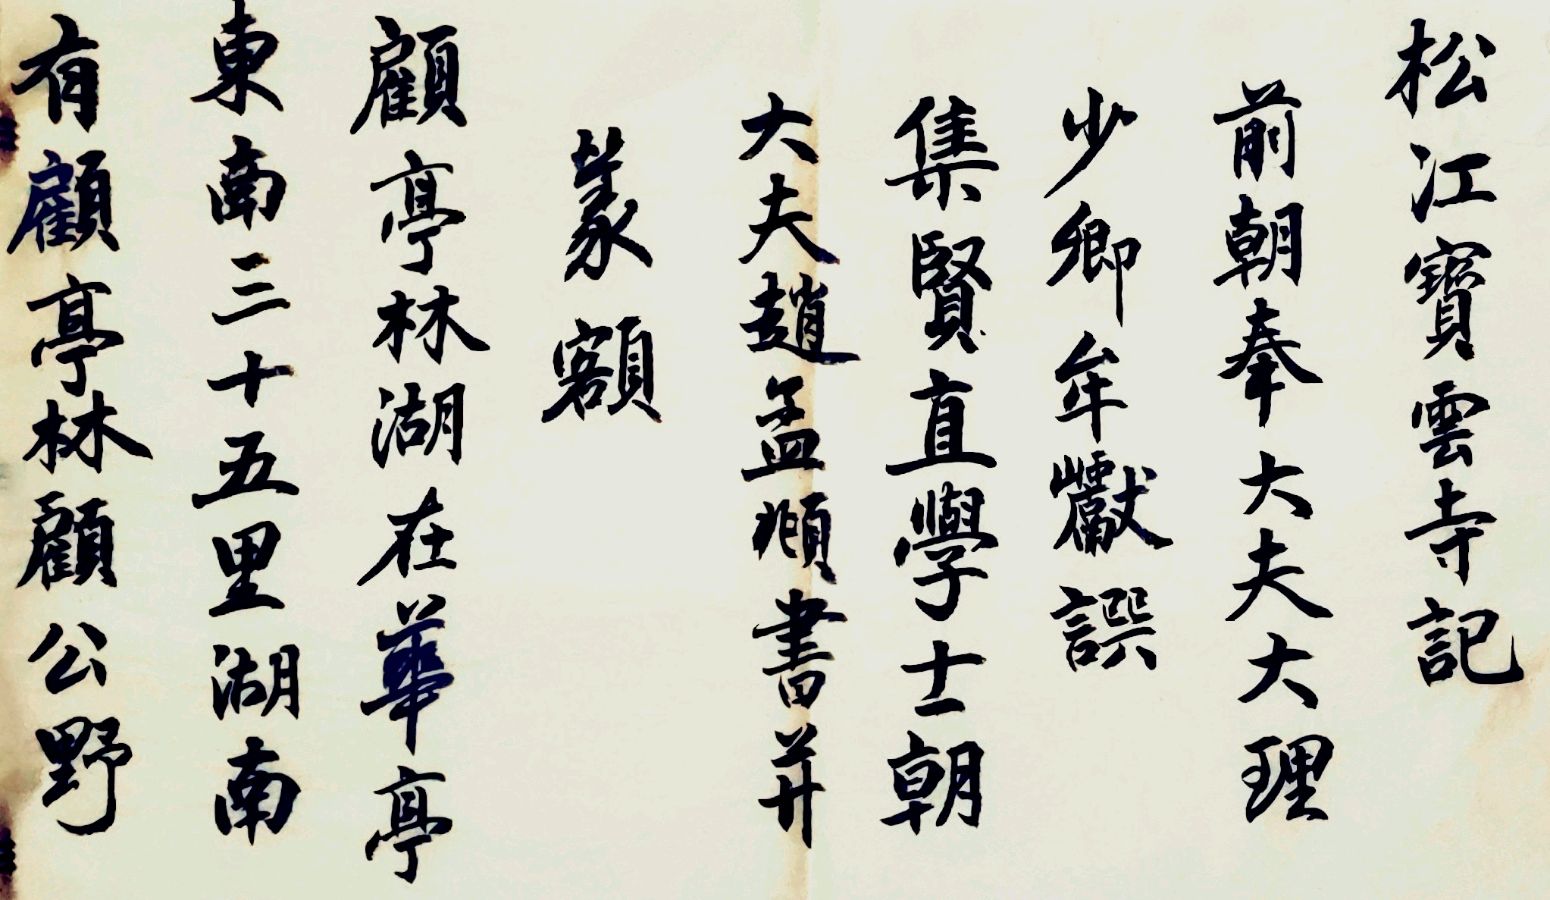 松江寶雲寺記
前朝奉大夫大理
少卿牟巘譔
集賢直學士朝
大夫趙孟頫書并
篆額
顧亭林湖在華亭
東南三十五里湖南
有顧亭林顧公野